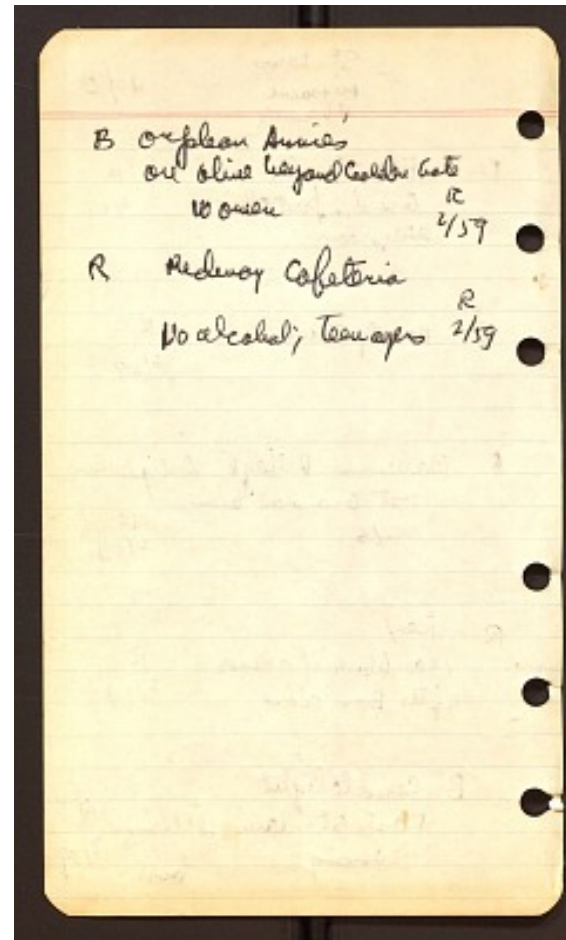 B orphean Annies
on olive beyond Golden Gate
Women R
2/59
R Redway Cafeteria
R
No alcohol; teenagers 2/59